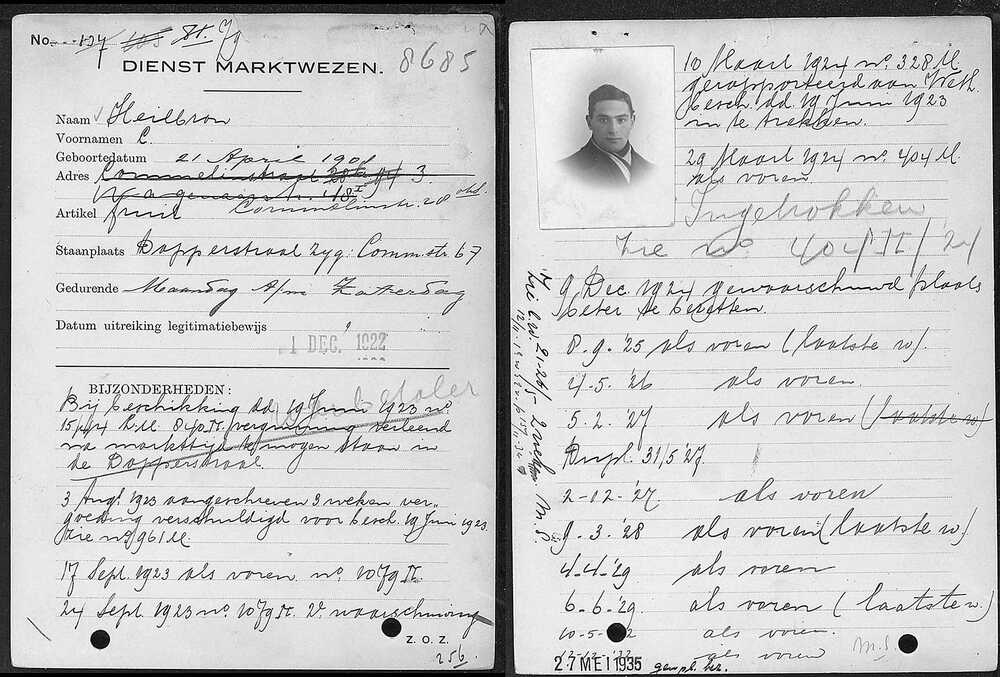 No. 137 103 81. 79
8685
DIENST MARKTWEZEN.
Naam Heilbron
Voornamen L.
Geboortedatum 21 April 190
Adres Commelinstraat 3.
Wagenaarstr. 48 I
Artikel fruit Commelinstr. 28
Staanplaats Dapperstraat zyg. Comm.str. 67
Gedurende Maandag t/m Zaterdag
Datum uitreiking legitimatiebewijs
1 DEC. 1922
BIJZONDERHEDEN:
betaler
Bij beschikking dd. 19 Juni 1923 no.
15/44 L.M. 840 II. vergunning verleend
na markttijd te mogen staan in
de Dapperstraat.
3 Aug. 1923 aangeschreven 3 weken ver-
goeding verschuldigd voor besch. 19 Juni 1923.
Zie no 961 M.
17 Sept. 1923 als voren no. 1079 II.
24 Sept. 1923 no. 1079 II. 2e waarschuwing
Z. O. Z.
256.
10 Maart 1924 no. 328 M.
gerapporteerd aan Weth.
besch. dd. 19 Juni 1923
in te trekken.
29 Maart 1924 no. 404 M.
als voren
Ingetrokken
Zie no. 404 II/24
9 Dec. 1924 gewaarschuwd plaats
beter te bezetten.
8.9.'25 als voren (laatste w).
4-5.'26 als voren.
5.2.'27 als voren (laatste w)
Dupl. 31/5'27.
2-12-'27. als voren
9.3.'28 als voren (laatste w).
4-4-'29 als voren
6-6-'29. als voren (laatste w.)
10-5- 2 als voren.
als voren
M.S.
27 MEI 1935 genpl. hr.